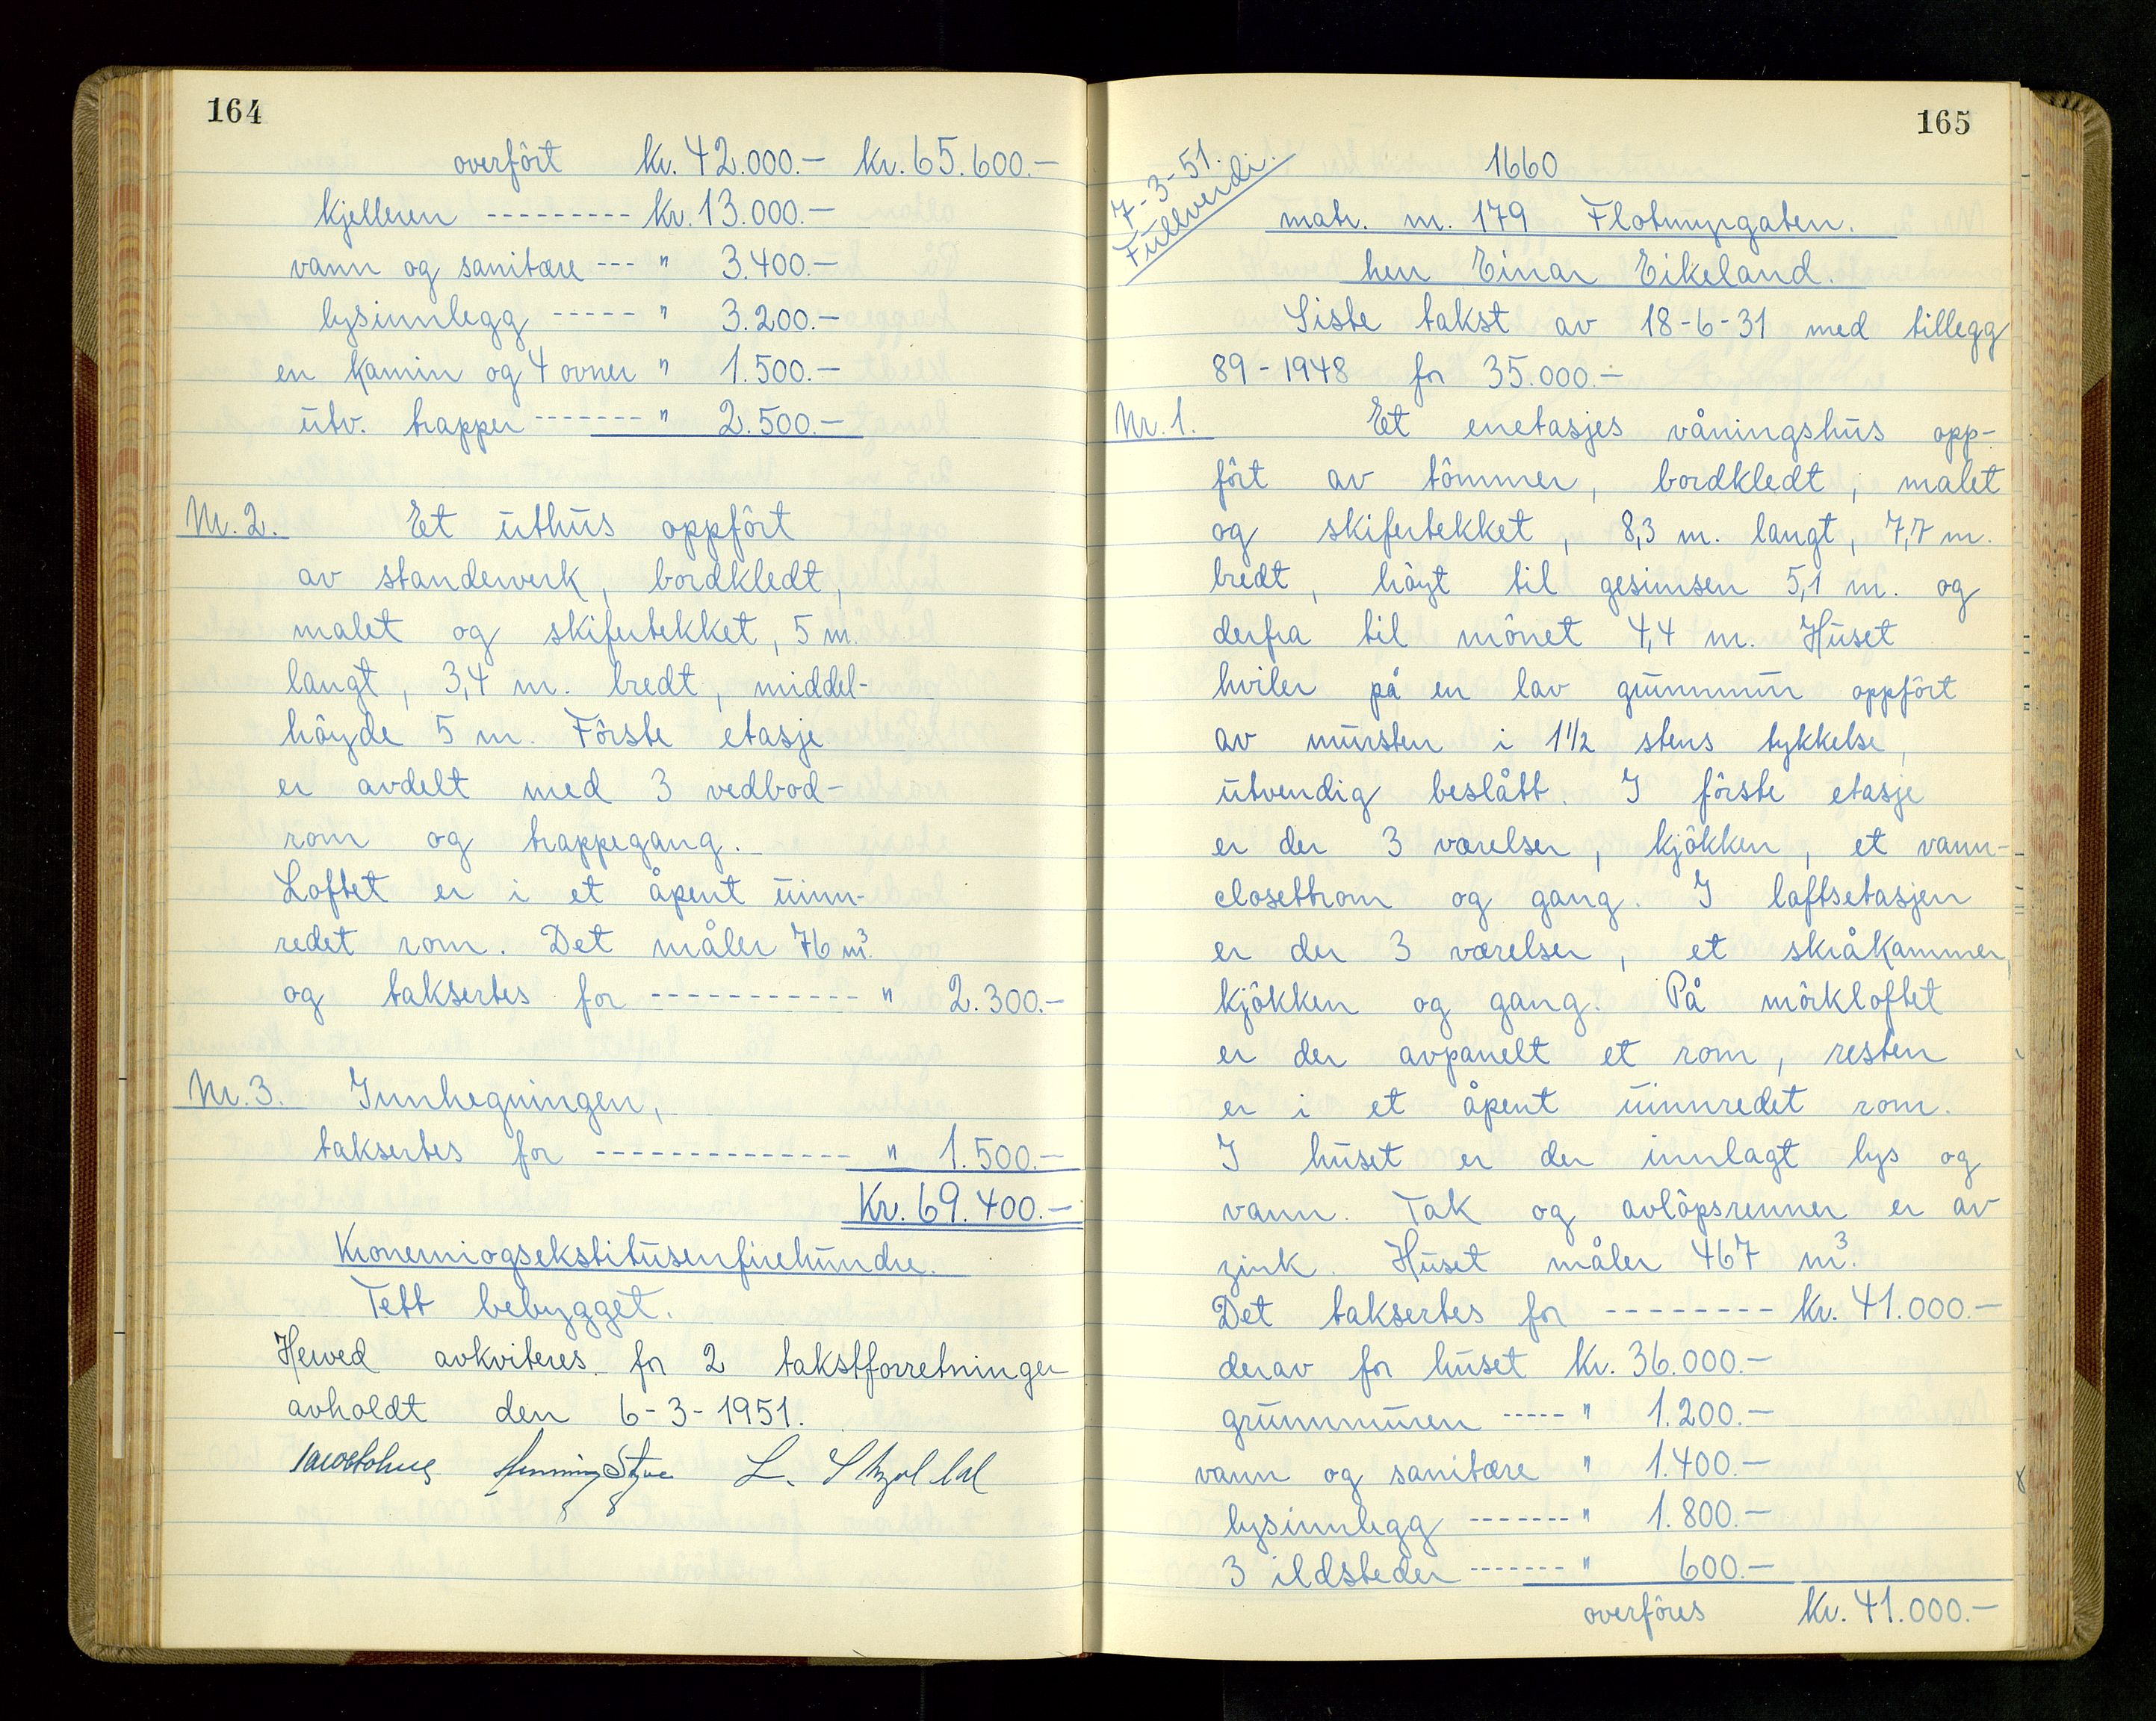 164
overfôrt kr. 42.000.- kr. 65.600.-
kjelleren --------- kr. 13.000.-
vann og sanitære --- " 3.400.-
lysinnlegg ----- " 3.200.-
en kamin og 4 ovner " 1.500.-
utv. trapper ------- " 2.500.-
Nr. 2. Et uthus oppfôrt
av standerverk, bordkledt,
malet og skifertekket, 5 m.
langt, 3,4 m. bredt, middel-
hôyde 5 m. Fôrste etasje
er avdelt med 3 vedbod-
rom og trappegang.
Loftet er i et åpent uinn-
redet rom. Det måler 76 m³.
og taksertes for ----------- " 2.300.-
Nr. 3. Innhegningen,
taksertes for -------------- " 1.500.-
Kr. 69.400.-
Kronerniogsekstitusenfirehundre.
Tett bebygget.
Herved avkviteres for 2 takstforretninger
avholdt den 6-3-1951.
Henning Styve L.
165
7-3-51.
Fullverdi.
1660
matr. nr. 179 Flotmyrgaten.
herr Einar Eikeland.
Siste takst av 18-6-31 med tillegg
89-1948 for 35.000.-
Nr. 1. Et enetasjes våningshus opp-
fôrt av tômmer, bordkledt, malet
og skifertekket, 8,3 m. langt, 7,7 m.
bredt, hôyt til gesimsen 5,1 m. og
derfra til mônet 4,4 m. Huset
hviler på en lav grunnmur oppfôrt
av mursten i 1 1/2 stens tykkelse,
utvendig beslått. I fôrste etasje
er der 3 værelser, kjôkken, et vann-
closettrom og gang. I loftsetasjen
er der 3 værelser, et skråkammer,
kjôkken og gang. På môrkloftet
er der avpanelt et rom, resten
er i et åpent uinnredet rom.
I huset er der innlagt lys og
vann. Tak og avlôpsrenner er av
zink. Huset måler 467 m³.
Det taksertes for -------- kr. 41.000.-
derav for huset kr. 36.000.-
grunnmuren ----- " 1.200.-
vann og sanitære " 1.400.-
lysinnlegg ------- " 1.800.-
3 ildsteder ------- " 600.-
overfôres kr. 41.000.-